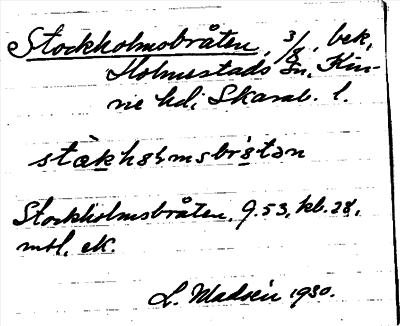 Stockholmsbråten, 3/8, bek,
Holmestads sn, Kin-
ne hd, Skarab. l.
stàkhɷḷmsbrɷ́tən
Stockholmsbråten, 9.53, kb. 28,
mtl, ek.
L. Madsén 1930.